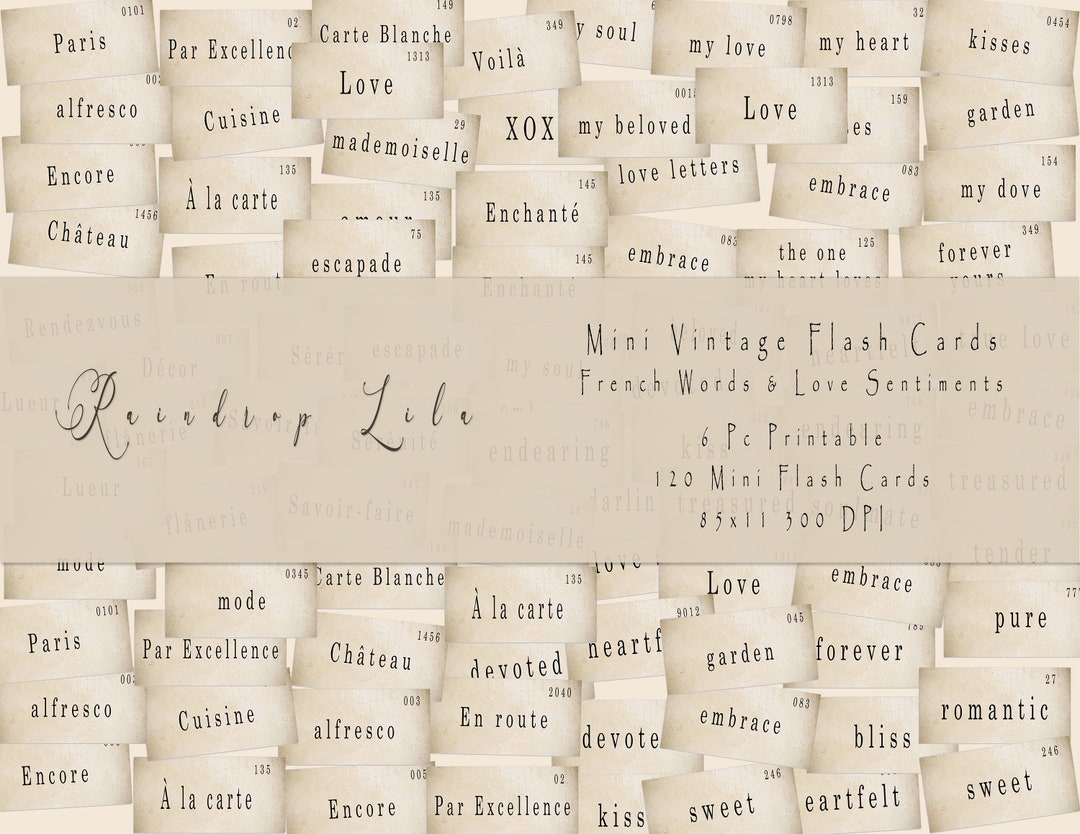 0101
Paris
02
Par Excellenc
149
Carte Blanche
1313
Love
349
Voilà
y soul
0798
my love
32
my heart
0454
kisses
alfresco
Cuisine
29
mademoiselle
XOX
0015
my beloved
1313
Love
159
es
garden
Encore
135
À la carte
135
145
Enchanté
love letters
083
embrace
154
my dove
1456
Château
75
escapade
En rout
145
Enchanté
083
embrace
125
the one
my heart loves
349
forever
yours
Rendezvous
007
Décor
Sérér
escapade
my soul
beloved
true love
Lueur
flânerie
Sérénité
endearing
kiss
embrace
Raindrop Lila
Mini Vintage Flash Cards
French Words & Love Sentiments
6 Pc Printable
120 Mini Flash Cards
85x11 300 DPI
Lueur
219
flânerie
547
Savoir-faire
mademoiselle
darlin
treasured
soulmate
treasured
tender
mode
0345
mode
149
Carte Blanche
135
À la carte
love
Love
embrace
777
pure
0101
Paris
Par Excellence
1456
Château
devoted
9012
heartf
045
garden
forever
alfresco
Cuisine
003
alfresco
2040
En route
devote
083
embrace
bliss
27
romantic
Encore
135
À la carte
005
Encore
02
Par Excellence
kiss
246
sweet
eartfelt
246
sweet